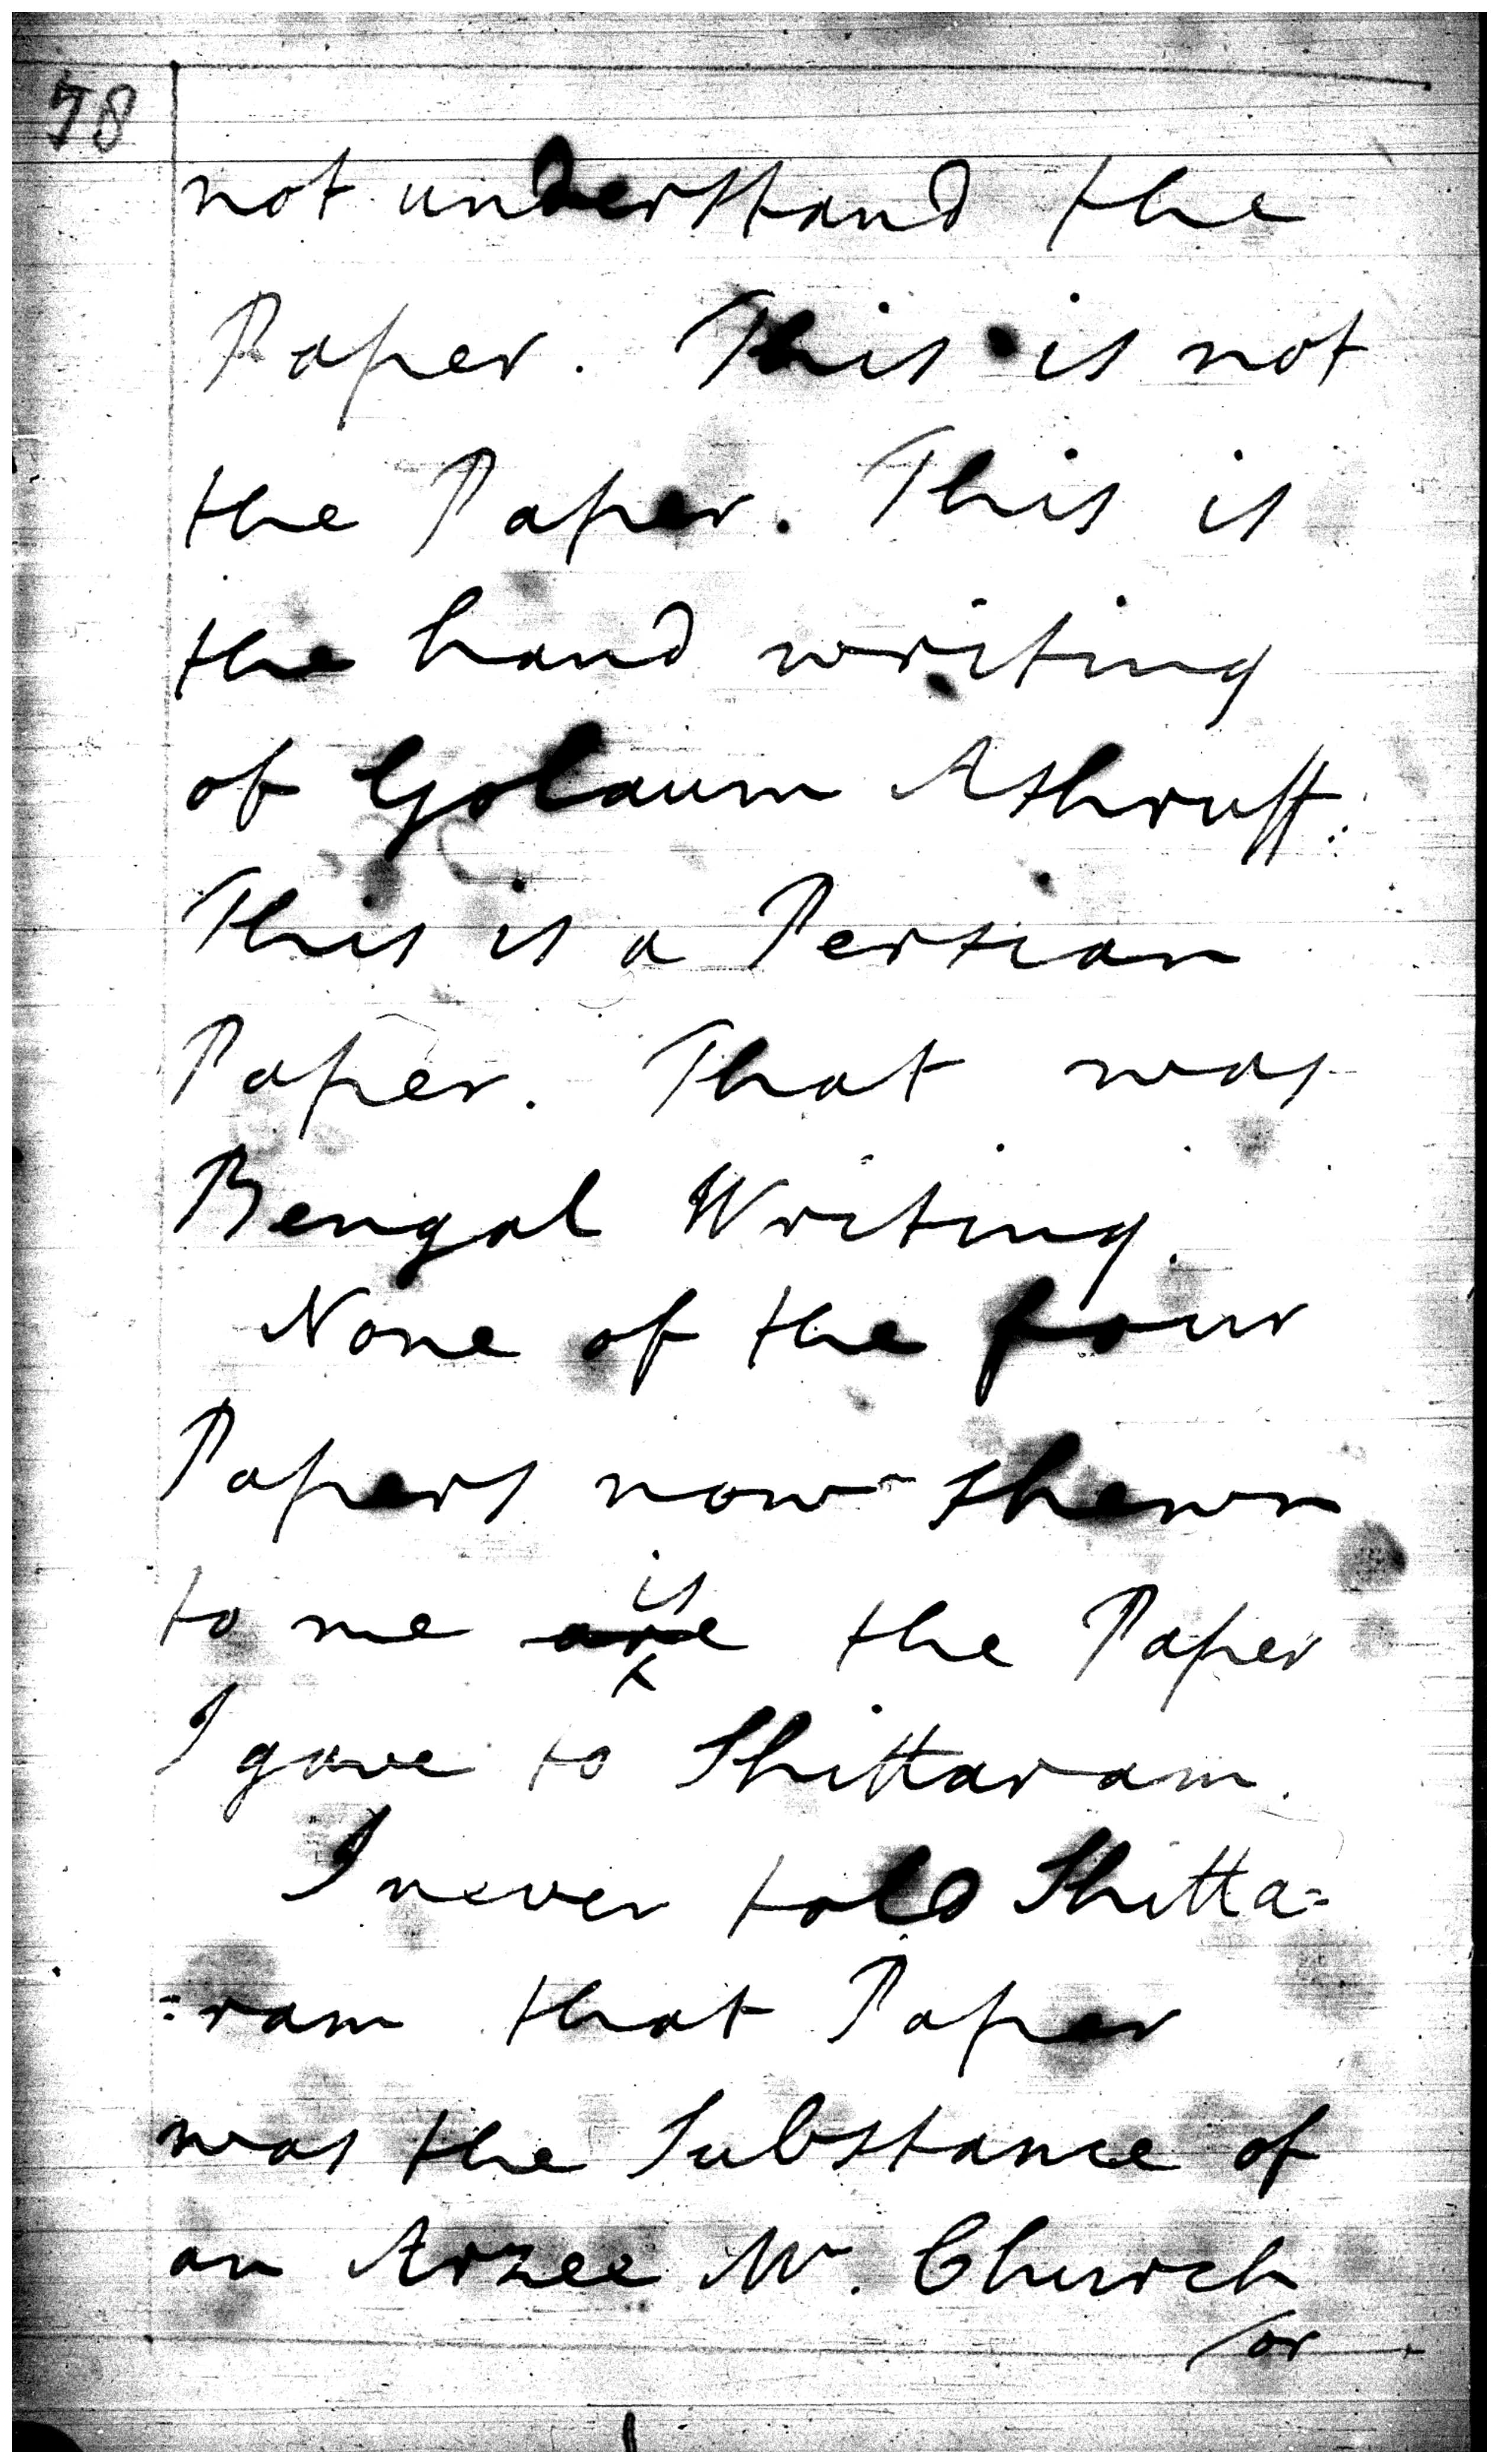 58
not understand the
Paper. This is not
the Paper. This is
the hand writing
of Golaum Ashruff.
This is a Persian
Paper. That was
Bengal Writing.
None of the four
Papers now shewn
to me are is the Paper
I gave to Shittaram.
I never told Shitta=
=ram that Paper
was the Substance of
an Arzee Mr. Church
/or